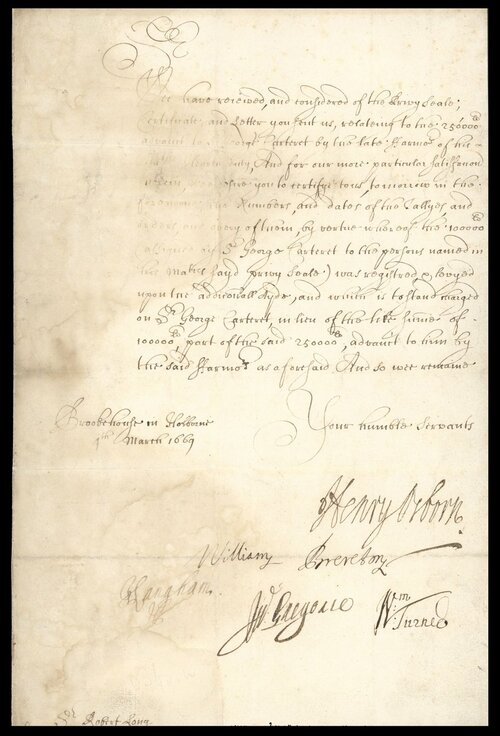 Sr
Wee have reveiwed, and considered of the Privy Seale,
Certificate, and Letter you sent us, relating to the 250000li
advanct to Sr George Carteret by the late Farmors of his
Mats Customes, And for our more particular satisfaccon
desire you to certifie to us, to morrow in the
forenoone, the Numbers, and dates of the Tallyes, and
orders, and every of them, by vertue whereof the 100000li
assigned by Sr George Carteret to the persons named in
his Maties sayd privy Seale, was registred, & levyed
upon the Additionall Ayde, and which is to stand charged
on Sr George Carteret, in lieu of the like summe of
100000li part of the said 250000li advanct to him by
the said Farmors as aforesaid. And so wee remaine
Brookehouse in Holborne
March 1669
Your humble Servants
Henry Osborn.
William Brereton
J Langham.
Jo: Gregorie Wm Turner
Sr Robert Long